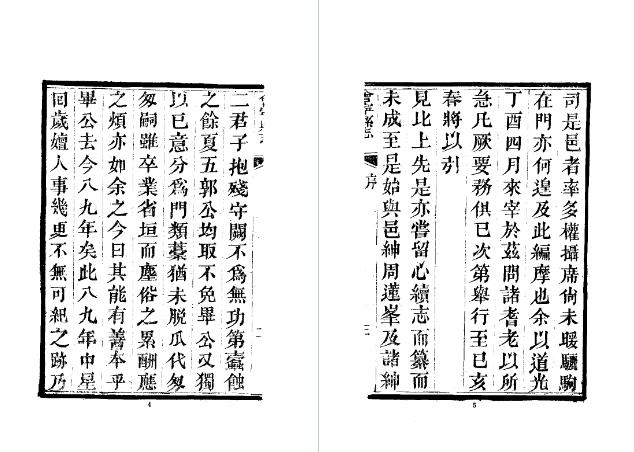 二君子抱殘守闕不爲無功第蠹蝕
之餘夏五郭公均取不免畢公又獨
以已意分爲門類藁猶未脫瓜代匆
匆嗣雖卒業省垣而塵俗之累酬應
之煩亦如余之今日其能有善本乎
畢公去今八九年矣此八九年中星
回歲嬗人事幾更不無可紀之跡乃
二
4
司是邑者率多權攝席尚未暖驪駒
在門亦何遑及此編摩也余以道光
丁酉四月來宰於茲問諸耆老以所
急凡厥要務俱已次第舉行至已亥
春將以引
見北上先是亦嘗留心續志而纂而
未成至是始與邑紳周蓮峯及諸紳
會寧縣志
序
三
5